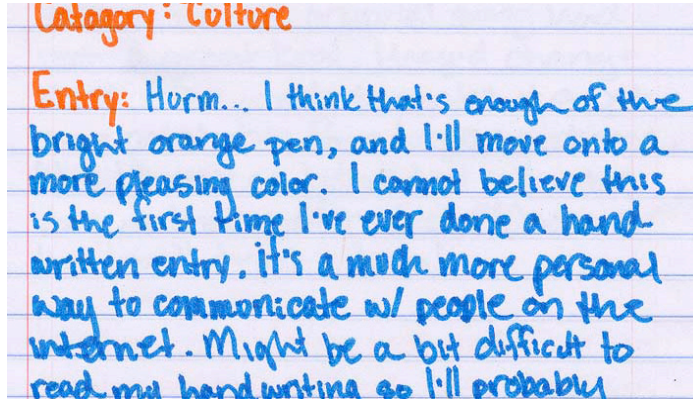 Catagory: Culture
Entry: Hurm... I think that's enough of the
bright orange pen, and I'll move onto a
more pleasing color. I cannot believe this
is the first time I've ever done a hand
written entry. it's a much more personal
way to communicate w/ people on the
internet. Might be a bit difficult to
read my handwriting so I'll probably